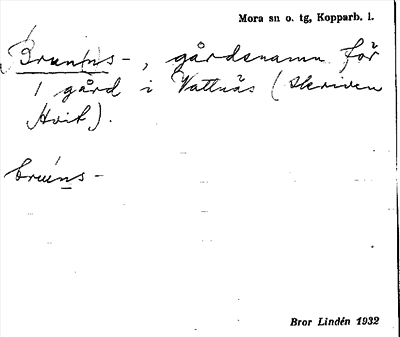 Mora sn o. tg, Kopparb. l.
Brunns-, gårdsnamn för
1 gård i Vattnäs (skriven
Hvit).
bruns-
Bror Lindén 1932